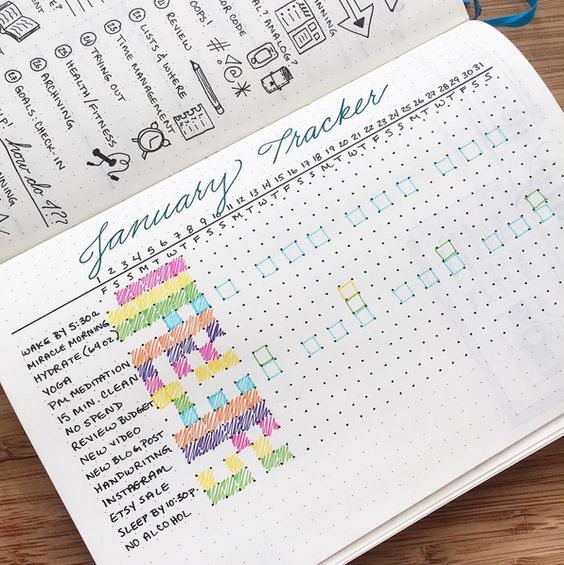 TRYING OUT
LISTS & WHERE
REVIEW
OOPS!
TIME MANAGEMENT
HEALTH/FITNESS
ARCHIVING
GOALS: CHECK-IN
how do I??
January Tracker
1 2 3 4 5 6 7 8 9 10 11 12 13 14 15 16 17 18 19 20 21 22 23 24 25 26 27 28 29 30 31
F S S M T W T F S S M T W T F S S M T W T F S S M T W T F S S
WAKE BY 5:30a
MIRACLE MORNING
HYDRATE (64 oz)
YOGA
PM MEDITATION
15 MIN. CLEAN
NO SPEND
REVIEW BUDGET
NEW VIDEO
NEW BLOG POST
HANDWRITING
INSTAGRAM
ETSY SALE
SLEEP BY 10:30p.
NO ALCOHOL